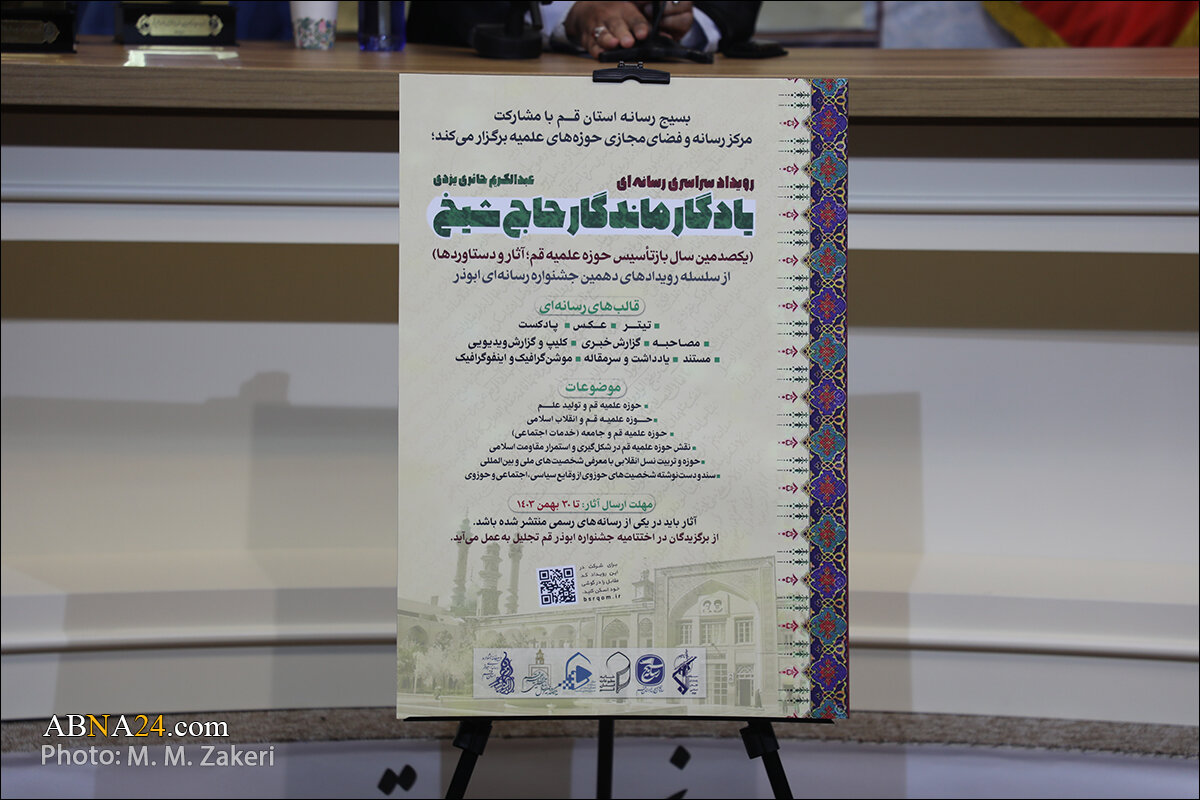 بسیج رسانه استان قم با مشارکت
مرکز رسانه و فضای مجازی حوزه‌های علمیه برگزار می‌کند؛
رویداد سراسری رسانه‌ای
عبدالکریم حائری یزدی
یادگار ماندگار حاج شیخ
(یکصدمین سال بازتأسیس حوزه علمیه قم؛ آثار و دستاوردها)
از سلسله رویدادهای دهمین جشنواره رسانه‌ای ابوذر
قالب‌های رسانه‌ای
▪ تیتر ▪ عکس ▪ پادکست
▪ مصاحبه ▪ گزارش خبری ▪ کلیپ و گزارش ویدیویی
▪ مستند ▪ یادداشت و سرمقاله ▪ موشن‌گرافیک و اینفوگرافیک
موضوعات
▪ حوزه علمیه قم و تولید علم
▪ حوزه علمیه قم و انقلاب اسلامی
▪ حوزه علمیه قم و جامعه (خدمات اجتماعی)
▪ نقش حوزه علمیه قم در شکل‌گیری و استمرار مقاومت اسلامی
▪ حوزه و تربیت نسل انقلابی با معرفی شخصیت‌های ملی و بین‌المللی
▪ سند و دست‌نوشته شخصیت‌های حوزوی از وقایع سیاسی، اجتماعی و حوزوی
مهلت ارسال آثار: تا ۳۰ بهمن ۱۴۰۳
آثار باید در یکی از رسانه‌های رسمی منتشر شده باشد.
از برگزیدگان در اختتامیه جشنواره ابوذر قم تجلیل به‌عمل می‌آید.
برای شرکت در
این رویداد کد
مقابل را در گوشی
خود اسکن کنید.
bsrqom.ir
ABNA24.com
Photo: M. M. Zakeri